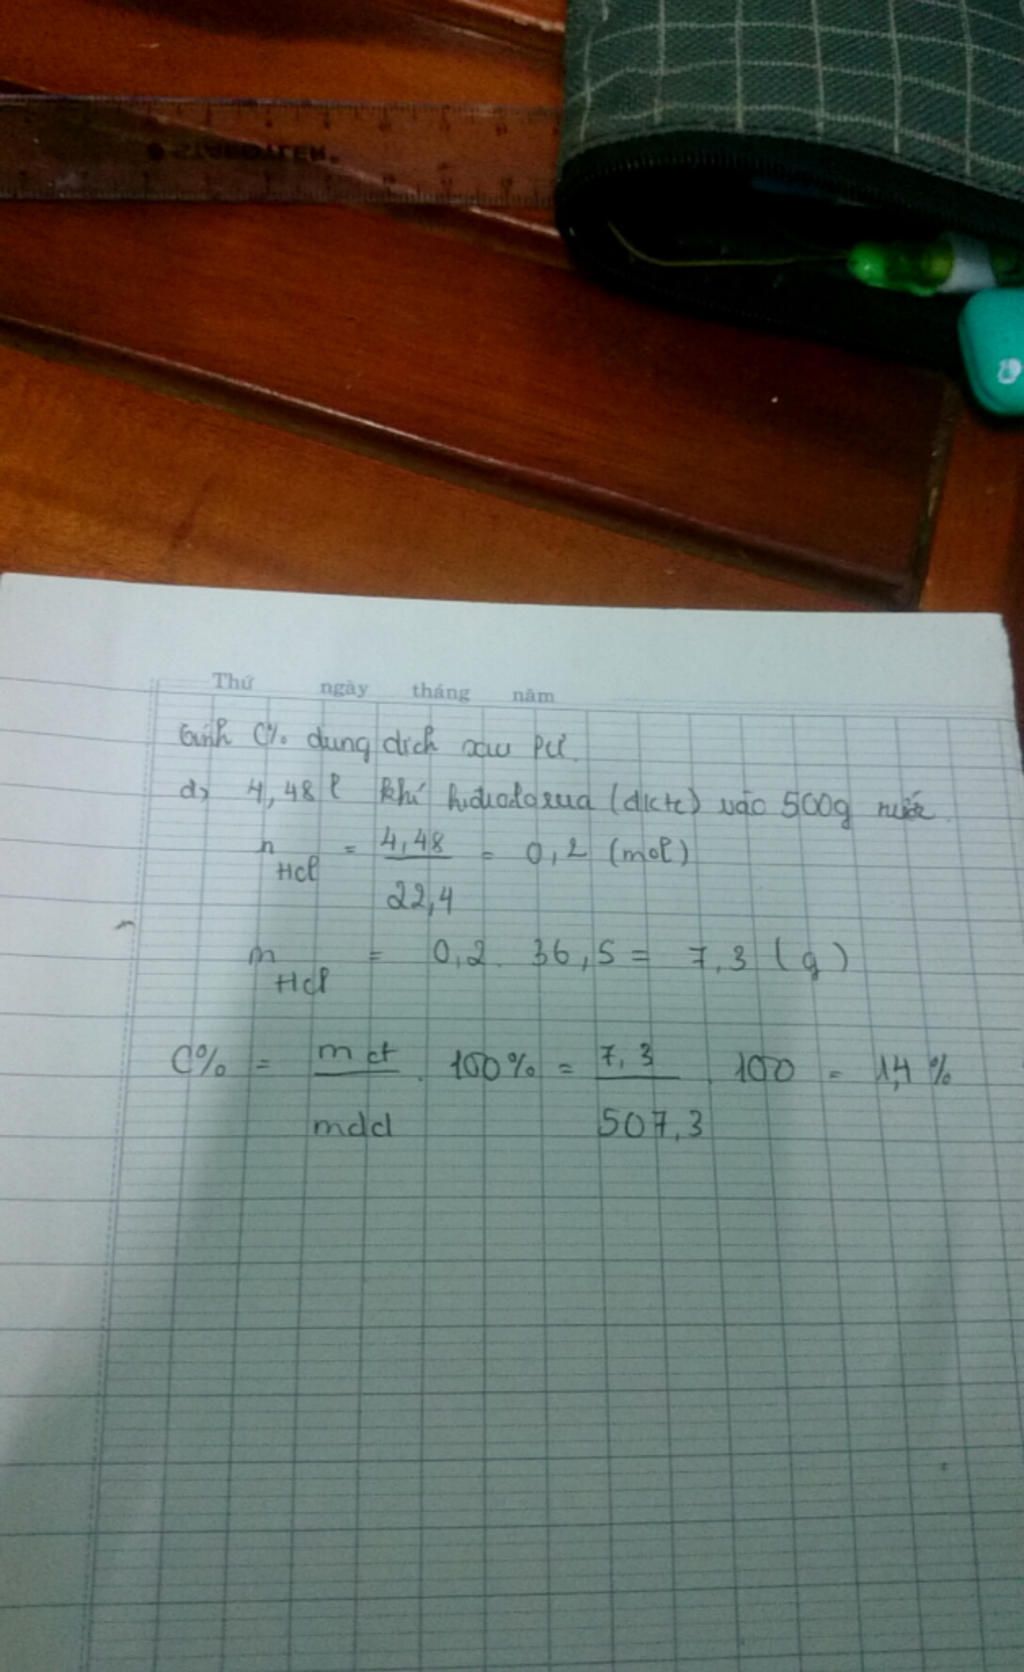 STAEDTLER
Thứ ngày tháng năm
Tính C% dung dịch sau PƯ.
d, 4,48 l khí hiđroclorua (đktc) vào 500g nước.
n HCl = 4,48 / 22,4 = 0,2 (mol)
m HCl = 0,2 . 36,5 = 7,3 (g)
C% = mct / mdd . 100% = 7,3 / 507,3 . 100 = 1,4 %